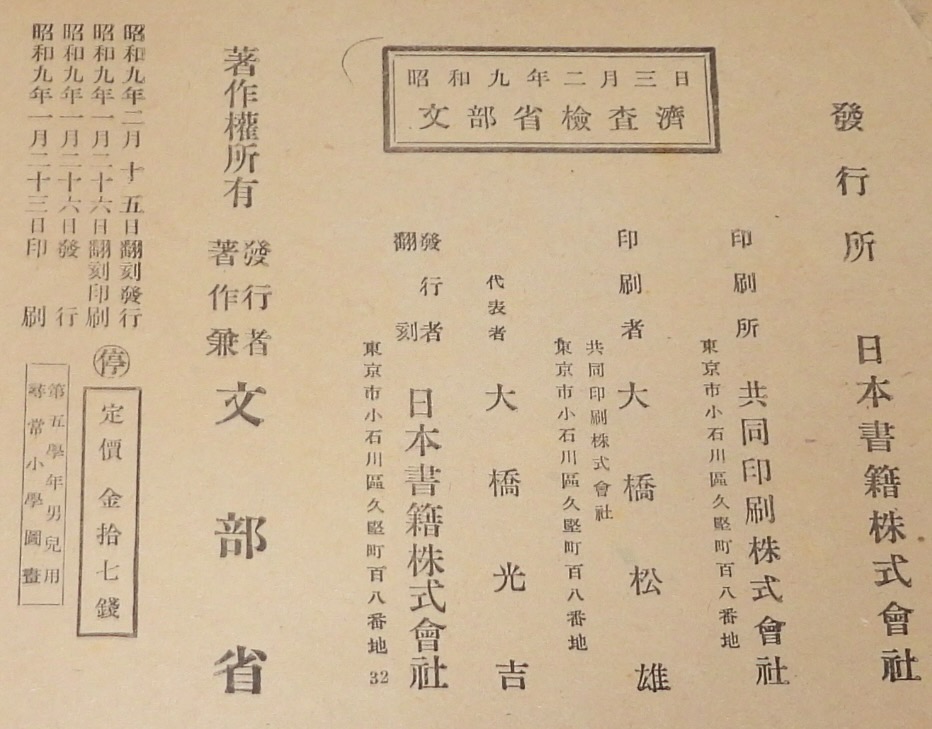 尋常小學圖畫
第五學年男兒用
昭和九年一月二十三日印刷
昭和九年一月二十六日發行
昭和九年一月二十六日翻刻印刷
昭和九年二月十五日翻刻發行
停
定價金拾七錢
著作權所有
著作兼
發行者
文部省
昭和九年二月三日
文部省檢査濟
翻刻
發行者
日本書籍株式會社
東京市小石川區久堅町百八番地
32
代表者 大橋光吉
印刷者 大橋松雄
東京市小石川區久堅町百八番地
共同印刷株式會社
印刷所 共同印刷株式會社
東京市小石川區久堅町百八番地
發行所 日本書籍株式會社